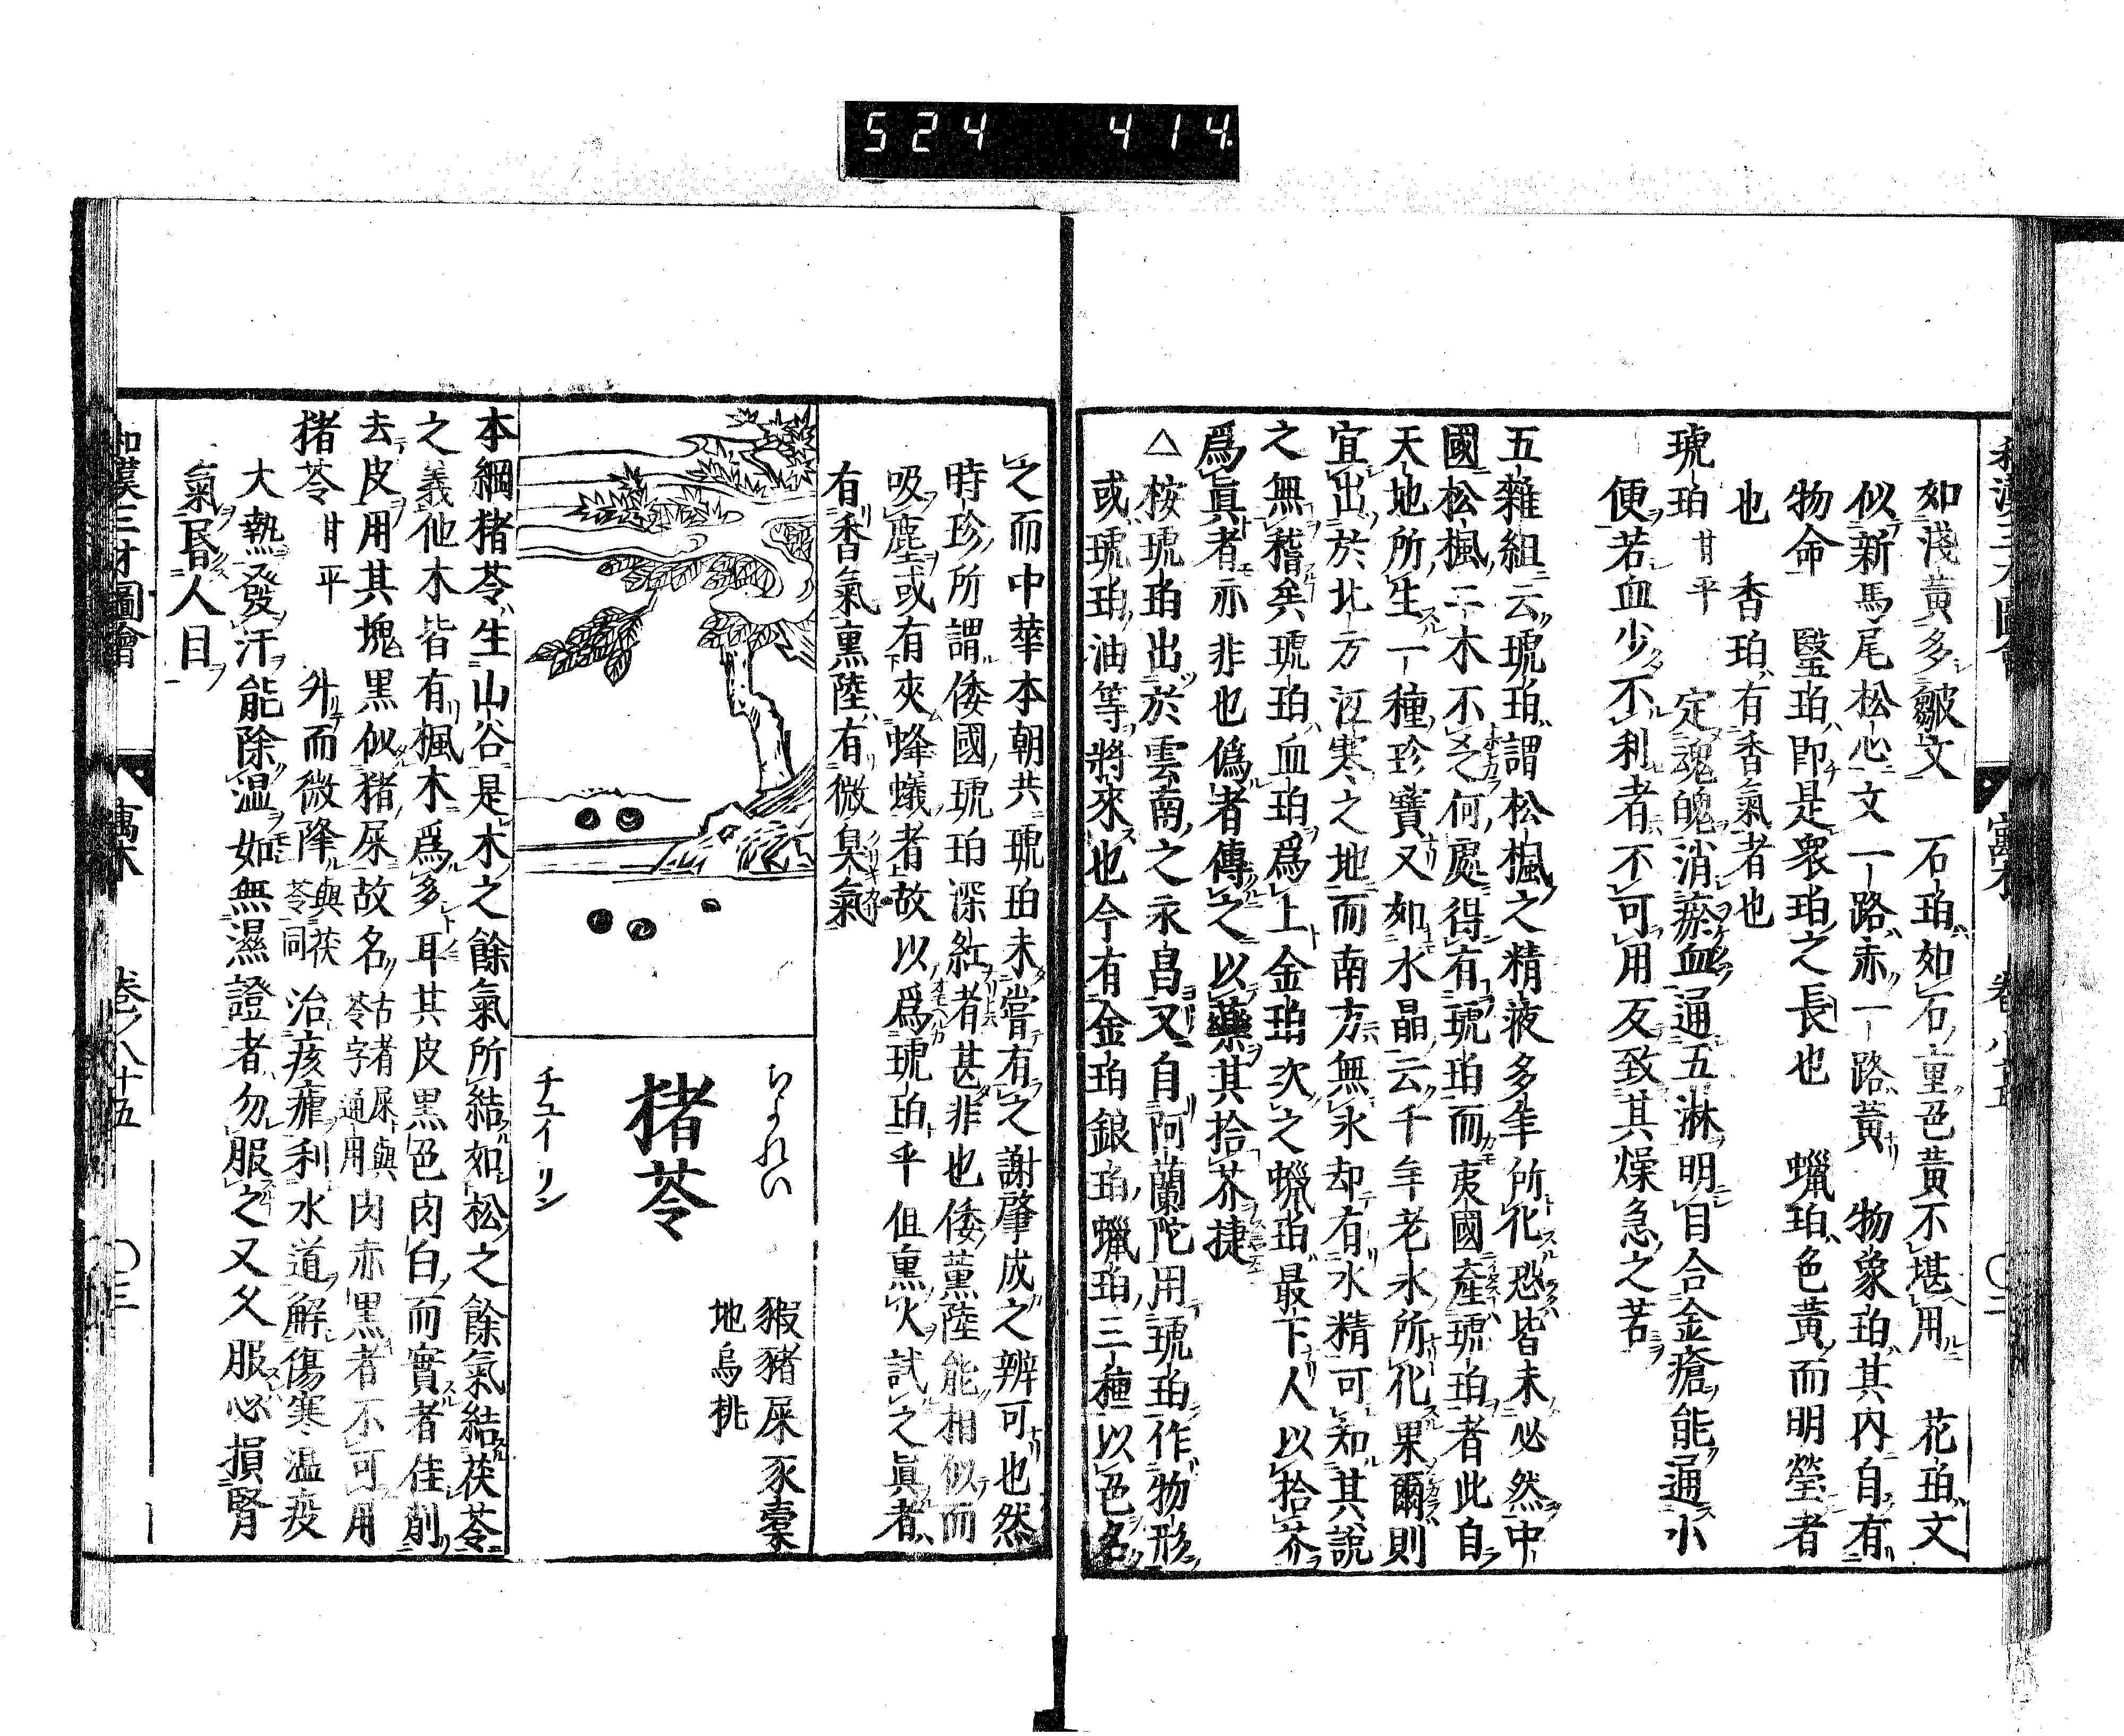 524 414.
如淺黃多皺文 石珀如石重色黃不堪用 花珀文
似新馬尾松心文一路赤一路黃 物象珀其內自有
物命 瑿珀即是衆珀之長也 蠟珀色黃而明瑩者
也 香珀有香氣者也
琥珀甘平 定魂魄消瘀血通五淋明目合金瘡能通小
便若血少不利者不可用反致其燥急之苦
五雜組云琥珀謂松楓之精液多年所化恐皆未必然中
國松楓二木不乏何處得有琥珀而夷國產琥珀者此自
天地所生一種珍寶又如水晶云千年老氷所化果爾則
宜出於北方冱寒之地而南方無氷却有水精可知其說
之無稽矣琥珀血珀爲上金珀次之蠟珀最下人以拾芥
爲眞者亦非也僞者傳之以藥其拾芥捷
△按琥珀出於雲南之永昌又自阿蘭陀用琥珀作物形
或琥珀油等將來也今有金珀銀珀蠟珀三種以色名
之而中華本朝共琥珀未嘗有之謝肇成之辨可也然
時珍所謂倭國琥珀深紅者甚非也倭薰陸能相似而
吸塵或有夾蜂蟻者故以爲琥珀乎但熏火試之眞者
有香氣熏陸有微臭氣
ちよれい
猪苓
チユイリン
豭豬屎 豕橐
地烏桃
本綱猪苓生山谷是木之餘氣所結如松之餘氣結茯苓
之義他木皆有楓木爲多耳其皮黒色肉白而實者佳削
去皮用其塊黒似猪屎故名古者屎與苓字通用肉赤黒者不可用
猪苓甘平 升而微降與茯苓同 治痎瘧利水道解傷寒温疫
大熱發汗能除温如無濕證者勿服之又久服必損腎
氣昬人目
和漢三才圖會 寓木 卷ノ八十五 〇三